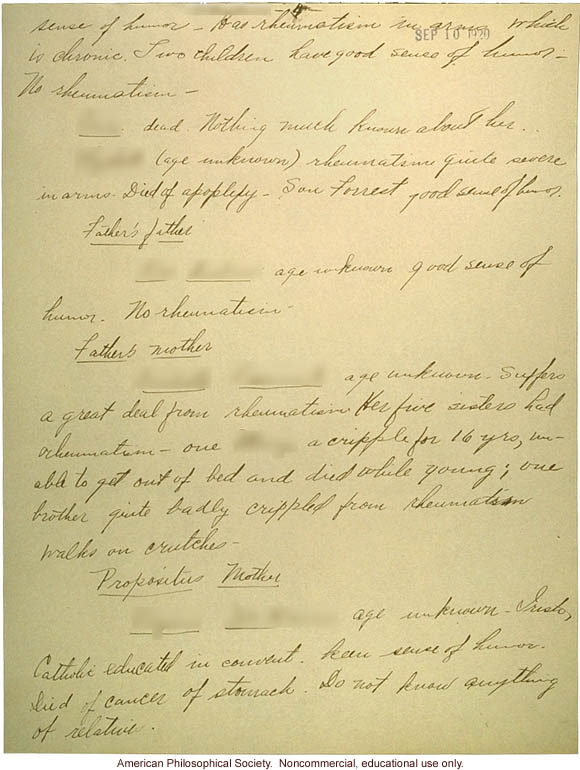 4
sense of humor - Has rheumatism in arms which
SEP 10 1920
is chronic. Two children have good sense of humor -
No rheumatism -
dead. Nothing much known about her.
(age unknown) rheumatism quite severe
in arms. Died of apoplexy - Son Forrest good sense of humor.
Father's father
age unknown good sense of
humor. No rheumatism -
Father's mother
age unknown - Suffers
a great deal from rheumatism Her five sisters had
rheumatism - one a cripple for 16 yrs, un-
able to get out of bed and died while young; one
brother quite badly crippled from rheumatism
walks on crutches -
Propositus Mother
age unknown - Irish,
Catholic educated in convent. keen sense of humor.
Died of cancer of stomach. Do not know anything
of relative.
American Philosophical Society. Noncommercial, educational use only.